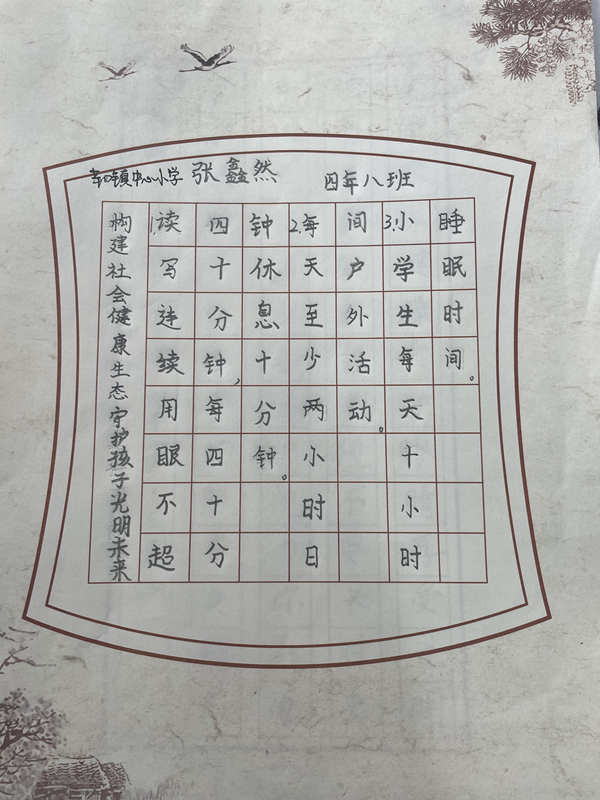 镇中心小学 张鑫然 四年八班
构建社会健康生态守护孩子光明未来
1.读写连续用眼不超
四十分钟,每四十分
钟休息十分钟。
2.每天至少两小时日
间户外活动。
3.小学生每天十小时
睡眠时间。